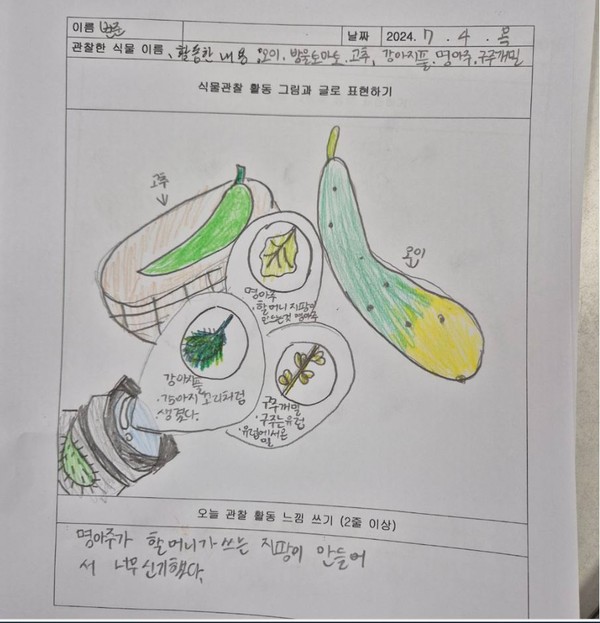 이름 범준 날짜 2024. 7 . 4 . 목
관찰한 식물 이름, 활동한 내용 :오이. 방울토마토.고추, 강아지풀.명아주.구주개밀
식물관찰 활동 그림과 글로 표현하기
고추
오이
명아주
·할머니 지팡이
만드는것 명아주
강아지풀
·강아지 꼬리처럼
생겼다.
구주개밀
·구주는유럽
·유럽에서온
밀
오늘 관찰 활동 느낌 쓰기 (2줄 이상)
명아주가 할머니가 쓰는 지팡이 만들어
서 너무신기했다.